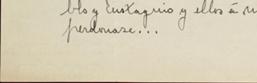 blo y Eustaquio y ellos á
perdonase...